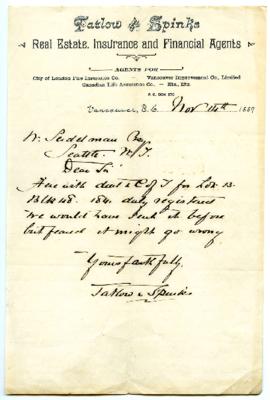 Tatlow & Spinks
Real Estate, Insurance and Financial Agents
AGENTS FOR
City of London Fire Insurance Co. Vancouver Improvement Co., Limited
Canadian Life Assurance Co. Etc., Etc.
P. O. BOX
Vancouver, B.C. Nov 14th 1889
W. Seidelman Esq
Seattle. W.T.
Dear Sir
Herewith deed & C of T for Lot 13.
Blk 48. 184. duly registered
We would have sent it before
but feared it might go wrong
Yours faithfully,
Tatlow & Spinks